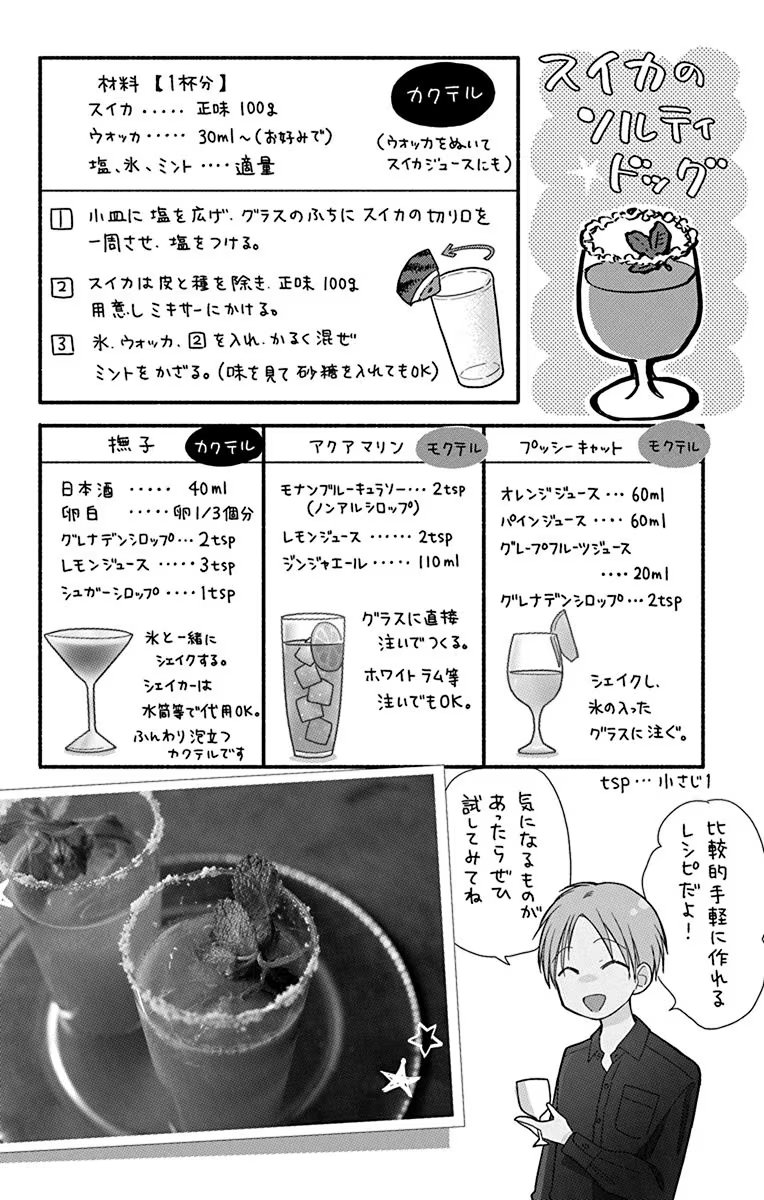 スイカの
ソルティ
ドッグ
材料【1杯分】
スイカ・・・・・正味 100g
ウォッカ・・・・・30ml〜(お好みで)
塩、氷、ミント・・・・適量
カクテル
(ウォッカをぬいて
スイカジュースにも)
1 小皿に塩を広げ、グラスのふちにスイカの切り口を
一周させ、塩をつける。
2 スイカは皮と種を除き、正味100g
用意しミキサーにかける。
3 氷、ウォッカ、2を入れ、かるく混ぜ
ミントをかざる。(味を見て砂糖を入れてもOK)
撫子 カクテル
日本酒・・・・・40ml
卵白・・・・・卵1/3個分
グレナデンシロップ・・・2tsp
レモンジュース・・・・・3tsp
シュガーシロップ・・・・1tsp
氷と一緒に
シェイクする。
シェイカーは
水筒等で代用OK。
ふんわり泡立つ
カクテルです
アクアマリン モクテル
モナンブルーキュラソー・・・2tsp
(ノンアルシロップ)
レモンジュース・・・・・・2tsp
ジンジャエール・・・・・110ml
グラスに直接
注いでつくる。
ホワイトラム等
注いでもOK。
プッシーキャット モクテル
オレンジジュース・・・60ml
パインジュース・・・・60ml
グレープフルーツジュース
・・・・20ml
グレナデンシロップ・・・2tsp
シェイクし、
氷の入った
グラスに注ぐ。
tsp・・・小さじ1
比較的手軽に作れる
レシピだよ!
気になるものが
あったらぜひ
試してみてね